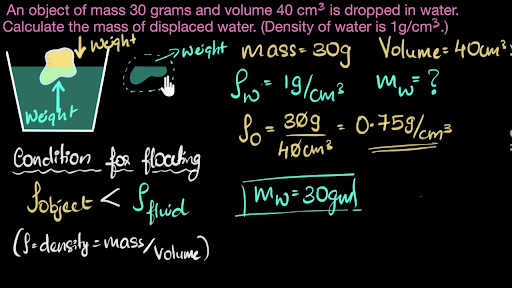 An object of mass 30 grams and volume 40 cm³ is dropped in water.
Calculate the mass of displaced water. (Density of water is 1g/cm³.)
weight
weight
mass = 30g Volume = 40cm³
weight
ρw = 1g/cm³ mw = ?
ρo = 30g/40cm³ = 0.75g/cm³
Condition for floating
ρobject < ρfluid
mw = 30gm
(ρ = density = mass/volume)